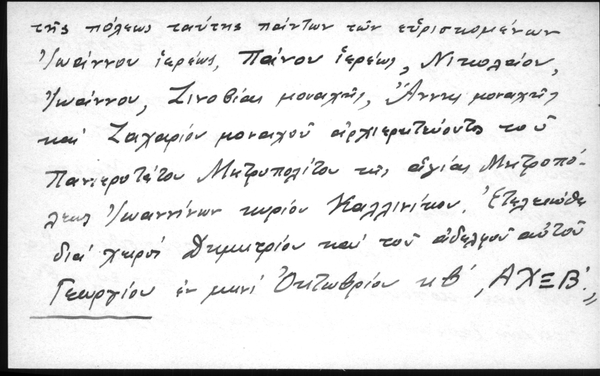 τῆς πόλεως ταύτης πάντων τῶν εὑρισκομένων
Ἰωάννου ἱερέως, Πάνου ἱερέως, Νικολάου,
Ἰωάννου, Ζινοβίας μοναχῆς, Ἄννης μοναχῆς
καὶ Ζαχαρίου μοναχοῦ ἀρχιερατεύοντος τοῦ
Πανιεροτάτου Μητροπολίτου τῆς ἁγίας Μητροπό-
λεως Ἰωαννίνων κυρίου Καλλινίκου. Ἐτελειώθη
διὰ χειρὸς Δημητρίου καὶ τοῦ ἀδελφοῦ αὐτοῦ
Γεωργίου ἐν μηνὶ Ὀκτωβρίου κβ΄, ΑΧΞΒ΄.